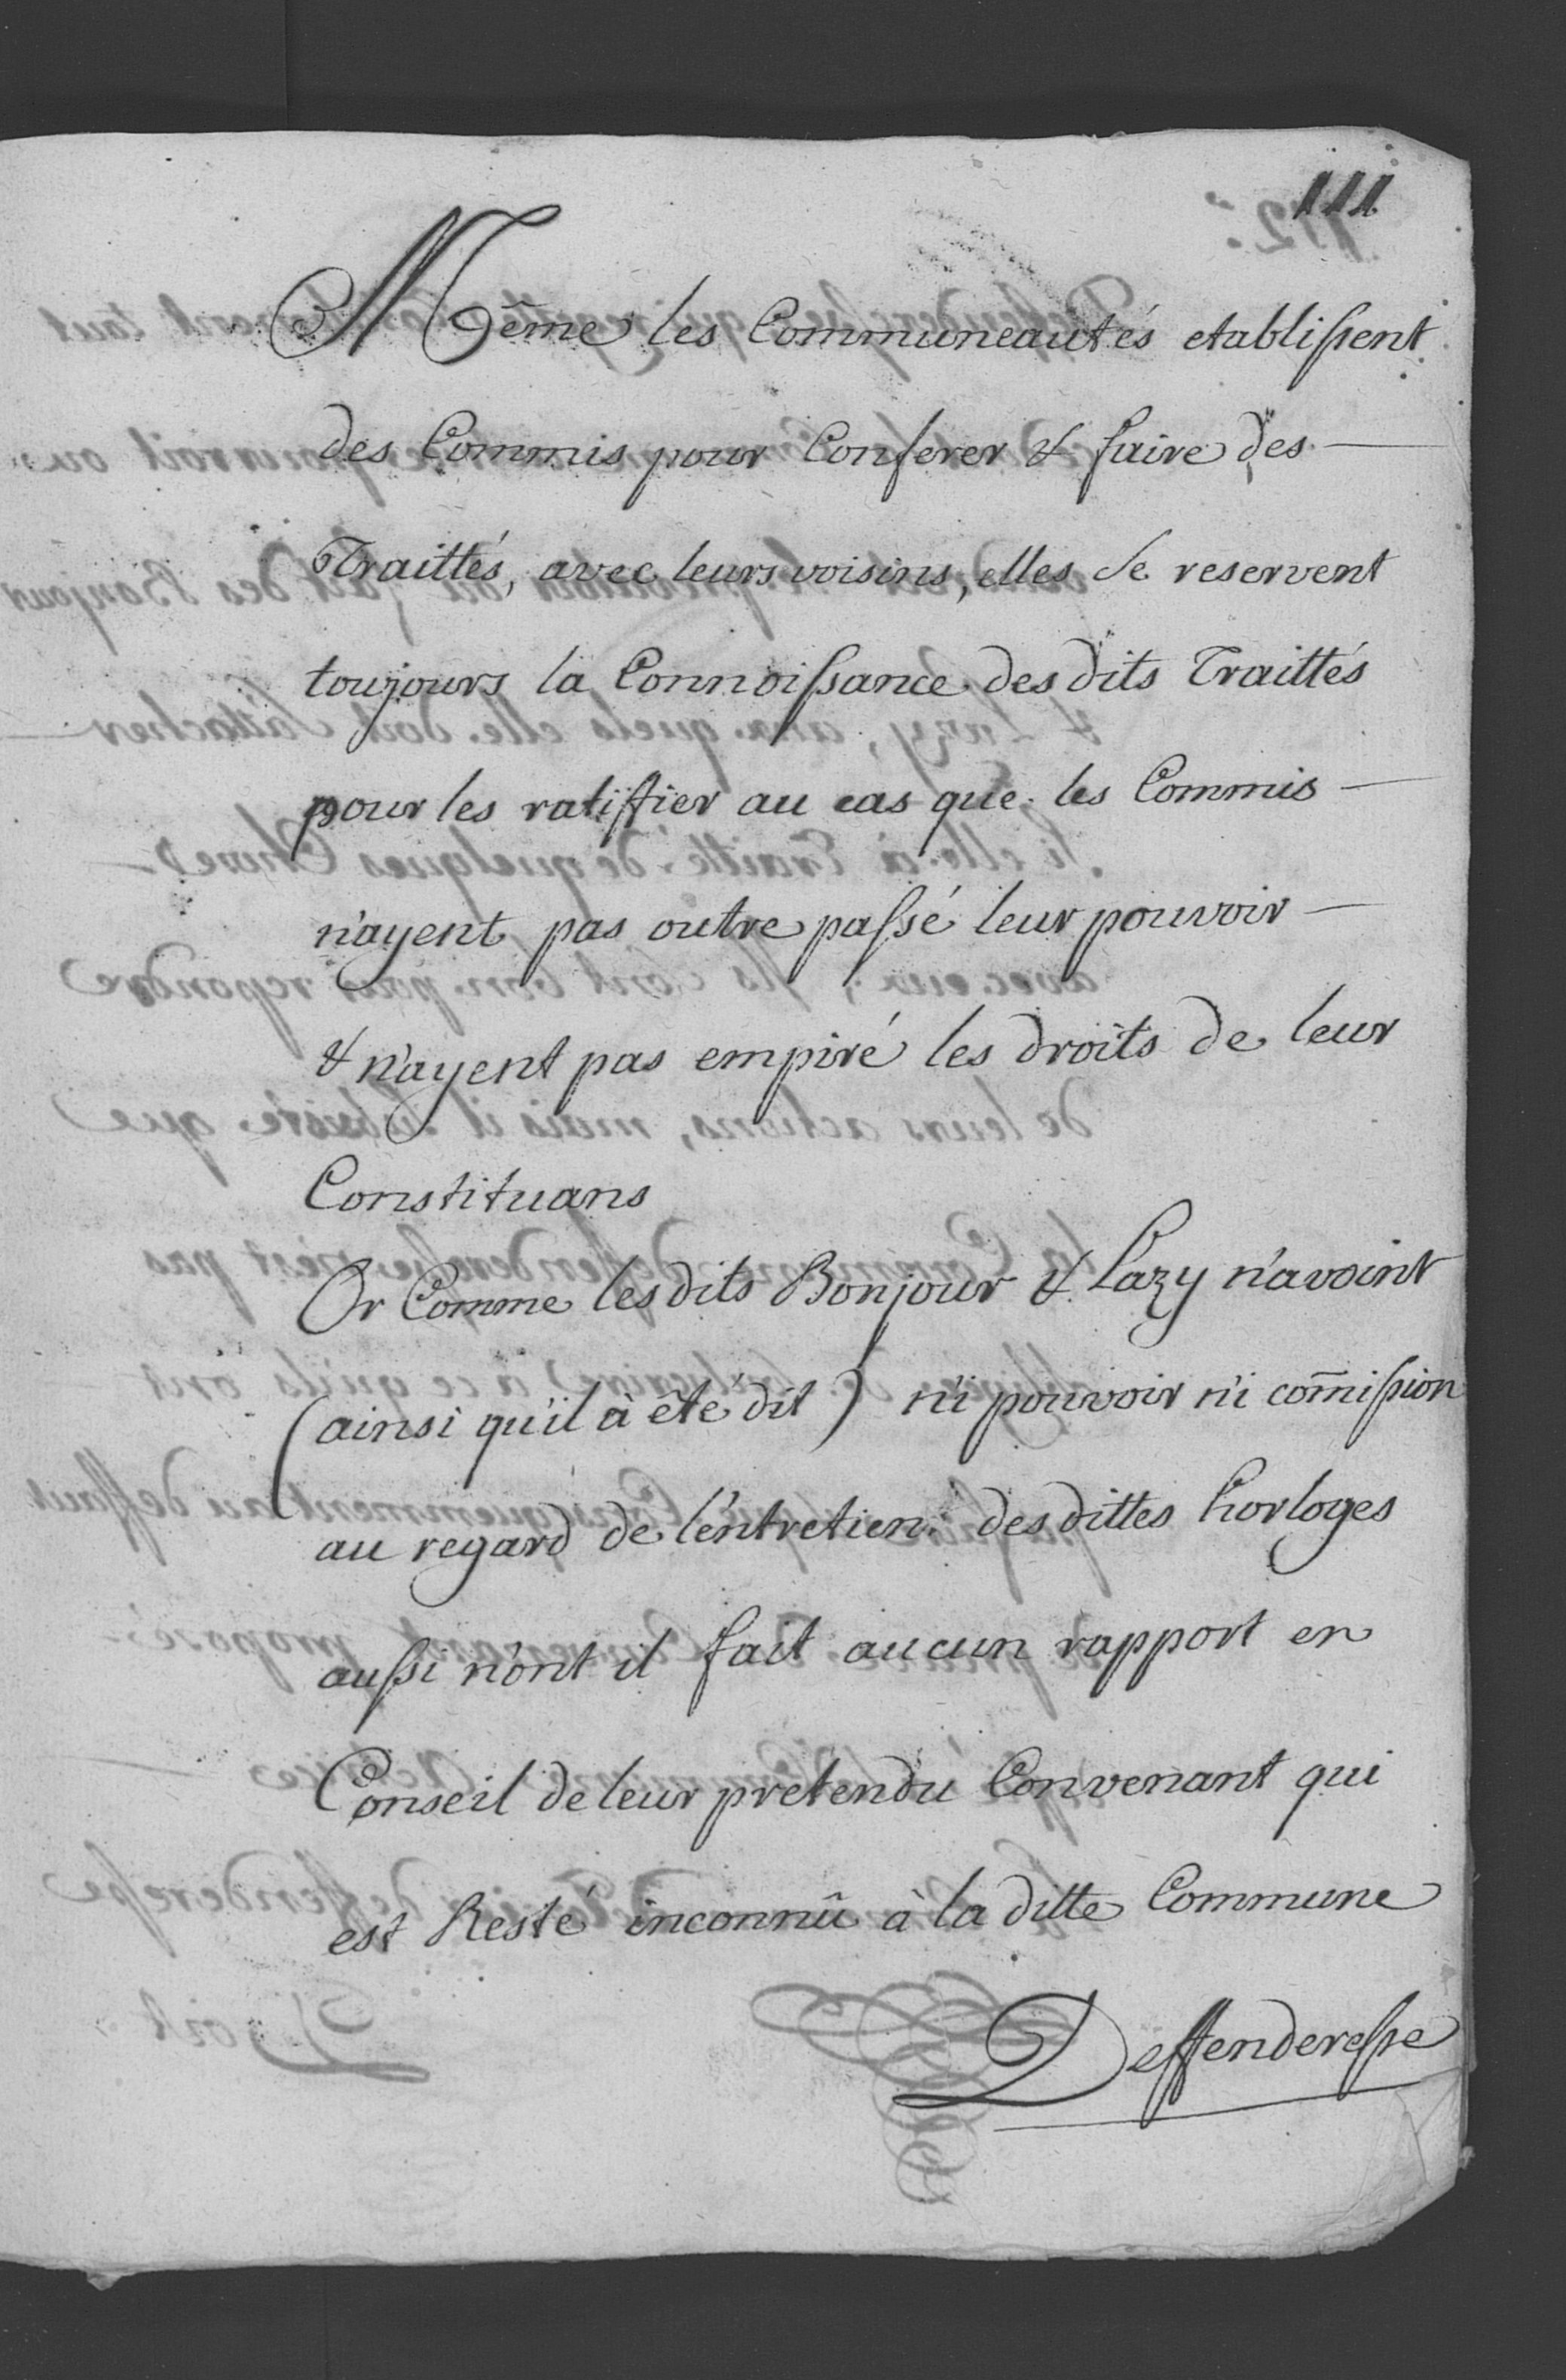 111
Même les Communeautés etablissent
des Commis pour Conferer & faire des
Traittés, avec leurs voisins, elles se reservent
toujours la Connoissance des dits Traittés
pour les ratiffier au cas que les Commis
n'ayent pas outre passé leur pouvoir
& n'ayent pas empiré les droits de leur
Constituans
Or Comme les dits Bonjour & Lazy n'avoint
(ainsi qu'il à êté dit) n'i pouvoir n'i com̄ission
au regard de l'éntretien des dittes horloges
aussi n'ont il fait aucun rapport en
Conseil de leur pretendu Convenant qui
est Resté inconnû à la ditte Commune
Deffenderesse